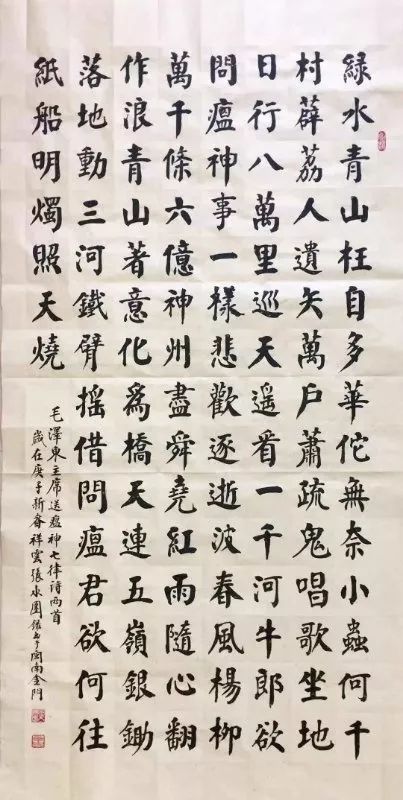 緑水青山枉自多華佗無奈小蟲何千
村薜荔人遺矢萬戶蕭疏鬼唱歌坐地
日行八萬里巡天遥看一千河牛郎欲
問瘟神事一樣悲歡逐逝波春風楊柳
萬千條六億神州盡舜堯紅雨隨心翻
作浪青山著意化為橋天連五嶺銀鋤
落地動三河鐵臂摇借問瘟君欲何往
紙船明燭照天燒
毛澤東主席送瘟神七律詩兩首
歲在庚子新春祥雲張於閩南金門